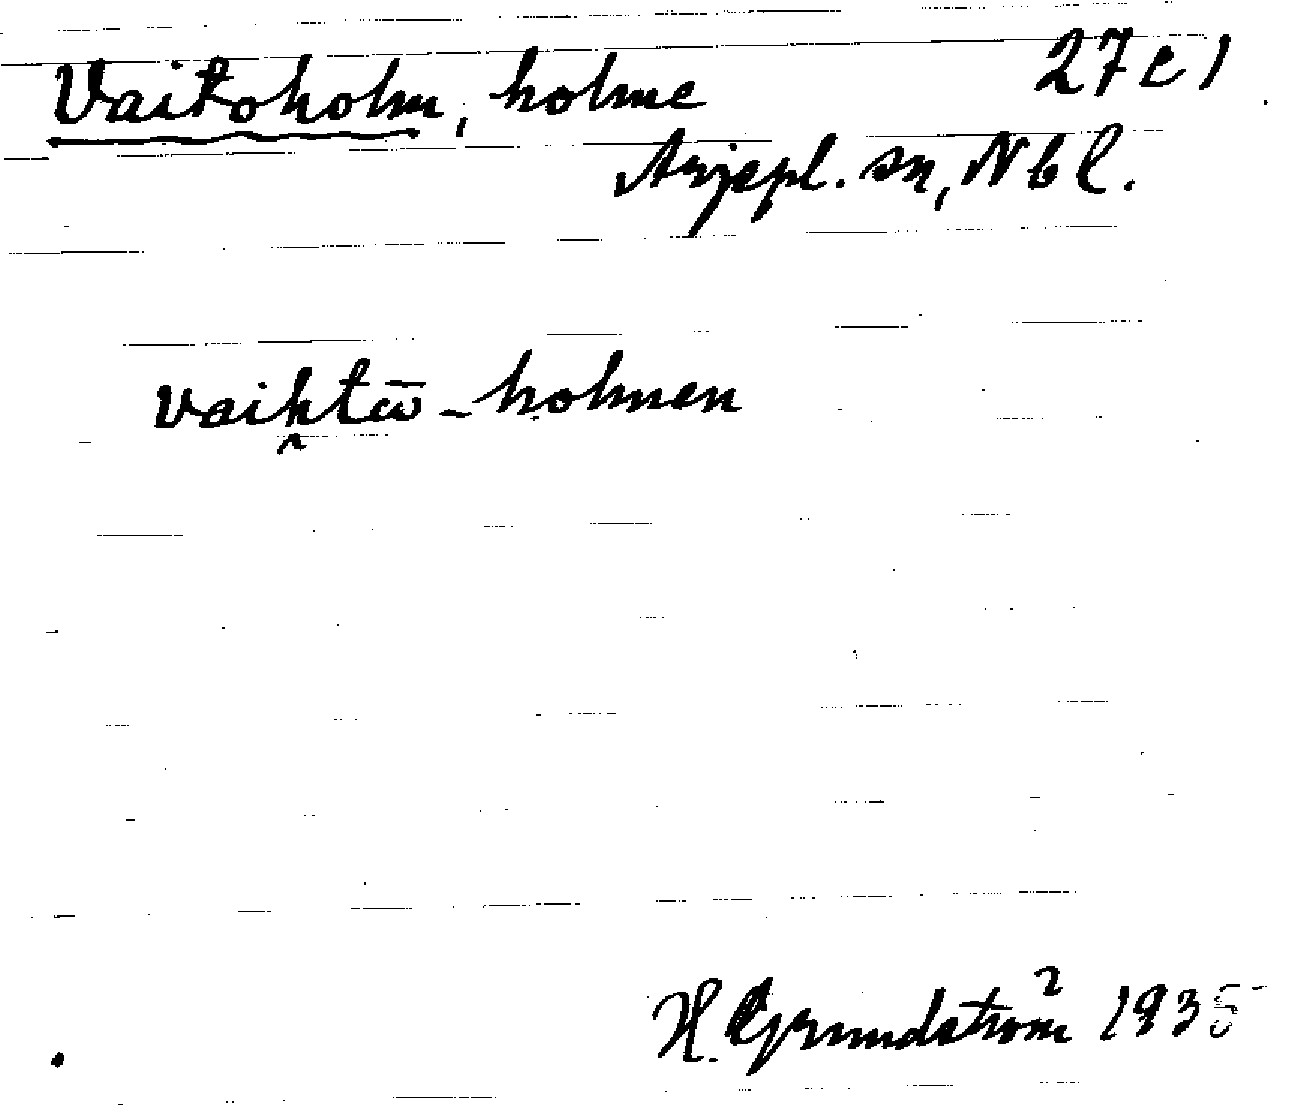 Vaitoholm, holme 27 c 1
Arjepl. sn, Nbl.
vaiḫtω̄-holmen
H. Grundström 1935